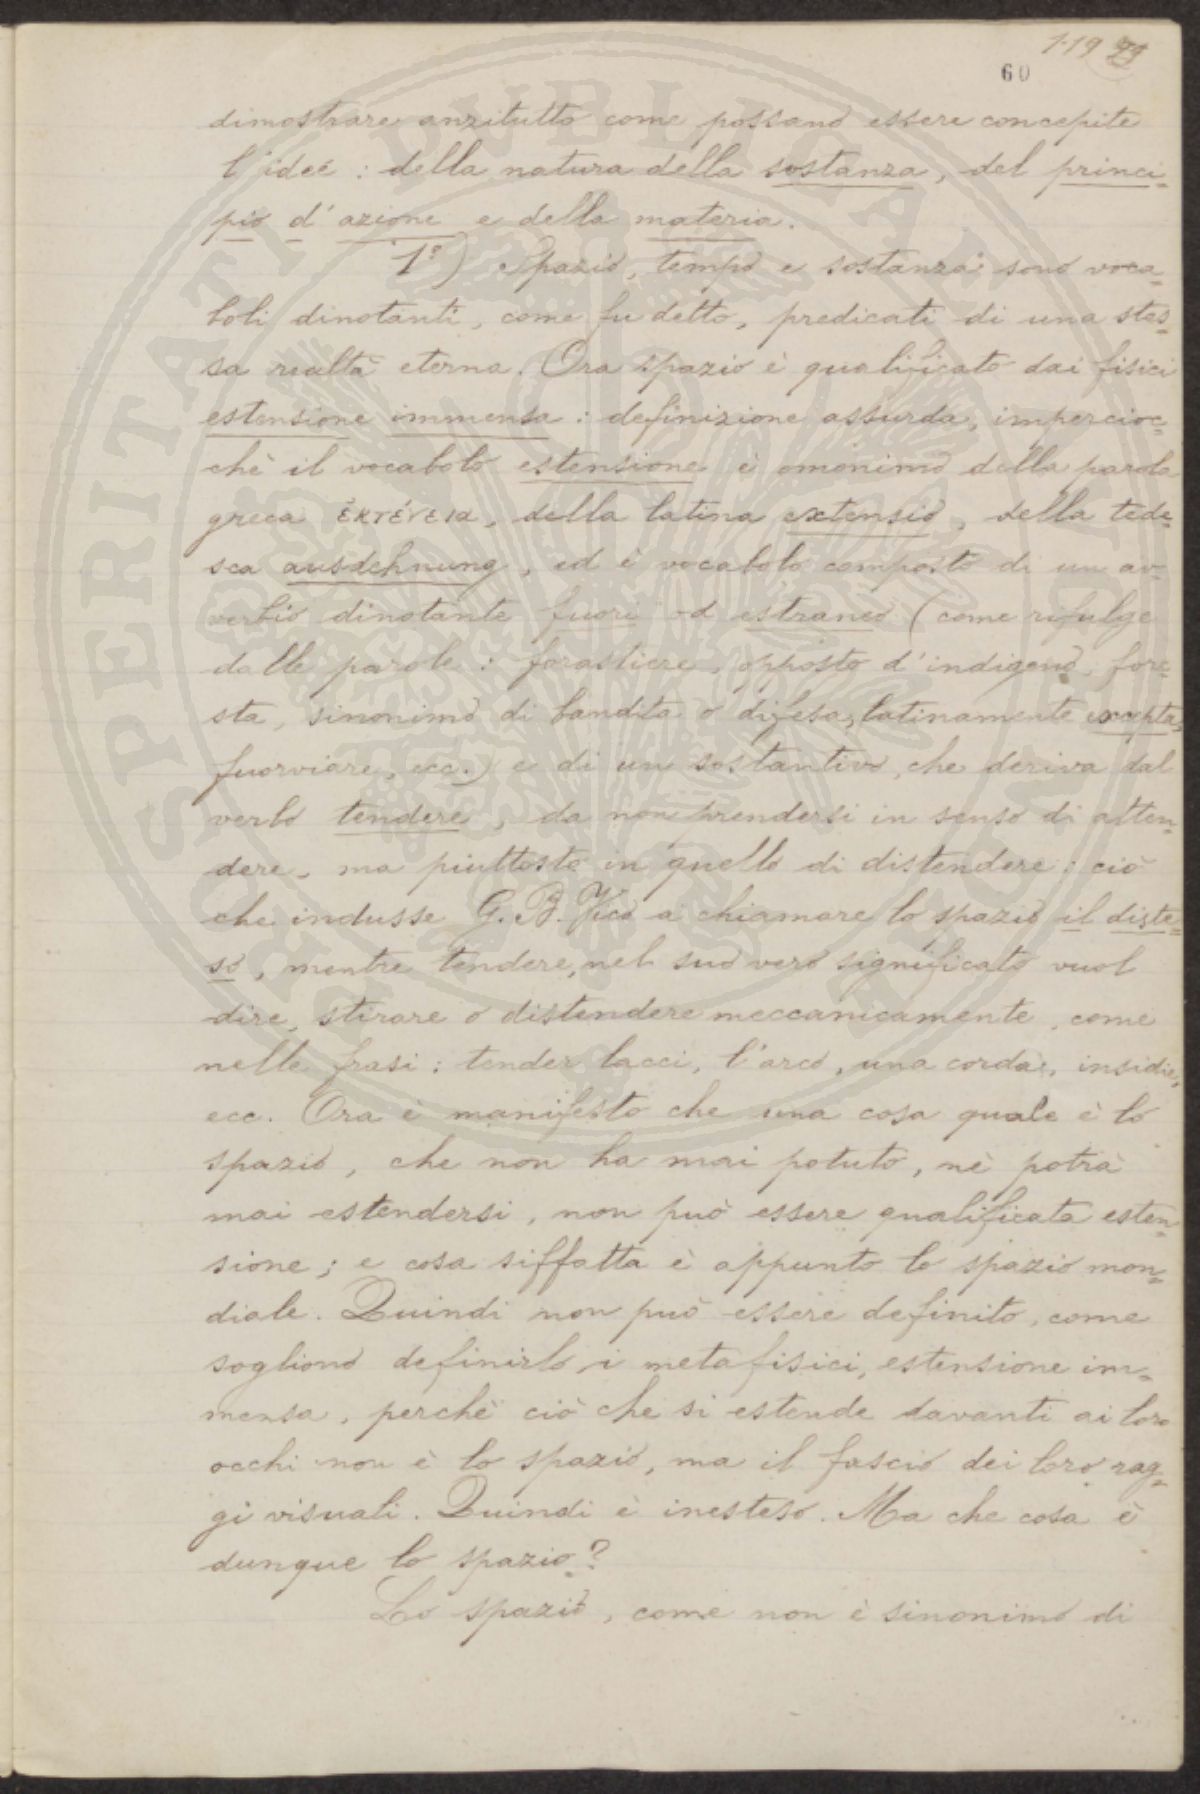 1-19
60
dimostrare anzitutto come possano essere concepite
l'idee : della natura della sostanza, del princi-
pio d'azione e della materia.
1º) Spazio, tempo e sostanza sono voca-
boli dinotanti, come fu detto, predicati di una stes-
sa realtà eterna. Ora spazio è qualificato dai fisici
estensione immensa : definizione assurda, impercioc-
chè il vocabolo estensione è omonimo della parola
greca ἐκτένεια, della latina extensio, della tede-
sca ausdehnung, ed è vocabolo composto di un av-
verbio dinotante fuori od estraneo (come rifulge
dalle parole : forastiere, opposto d'indigeno, fore-
sta, sinonimo di bandita o difesa, latinamente excepta,
fuorviare, ecc.) e di un sostantivo, che deriva dal
verbo tendere, da non prendersi in senso di atten-
dere, ma piuttosto in quello di distendere : ciò
che indusse G. B. Vico a chiamare lo spazio il diste-
so, mentre tendere, nel suo vero significato vuol
dire, stirare o distendere meccanicamente, come
nelle frasi : tender lacci, l'arco, una corda, insidie,
ecc. Ora è manifesto che una cosa quale è lo
spazio, che non ha mai potuto, nè potrà
mai estendersi, non può essere qualificata esten-
sione ; e cosa siffatta è appunto lo spazio mon-
diale. Quindi non può essere definito, come
sogliono definirlo i metafisici, estensione im-
mensa, perchè ciò che si estende davanti ai loro
occhi non è lo spazio, ma il fascio dei loro rag-
gi visuali. Quindi è inesteso. Ma che cosa è
dunque lo spazio?
Lo spazio, come non è sinonimo di
PROSPERITATI PUBLICAE